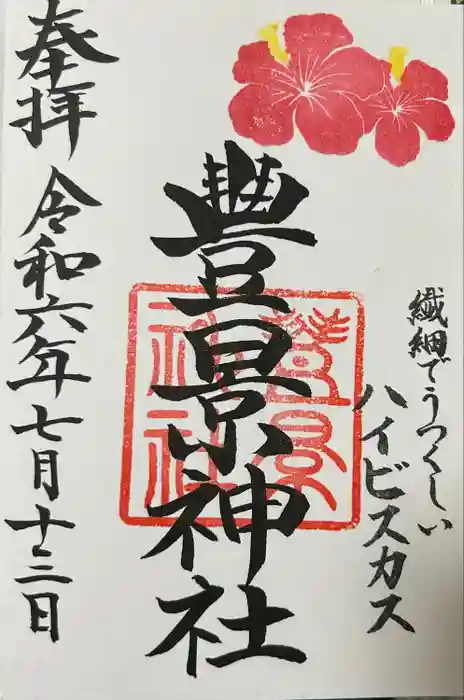 繊細でうつくしい
ハイビスカス
豊景神社
豊景
神社
奉拝
令和六年七月十三日